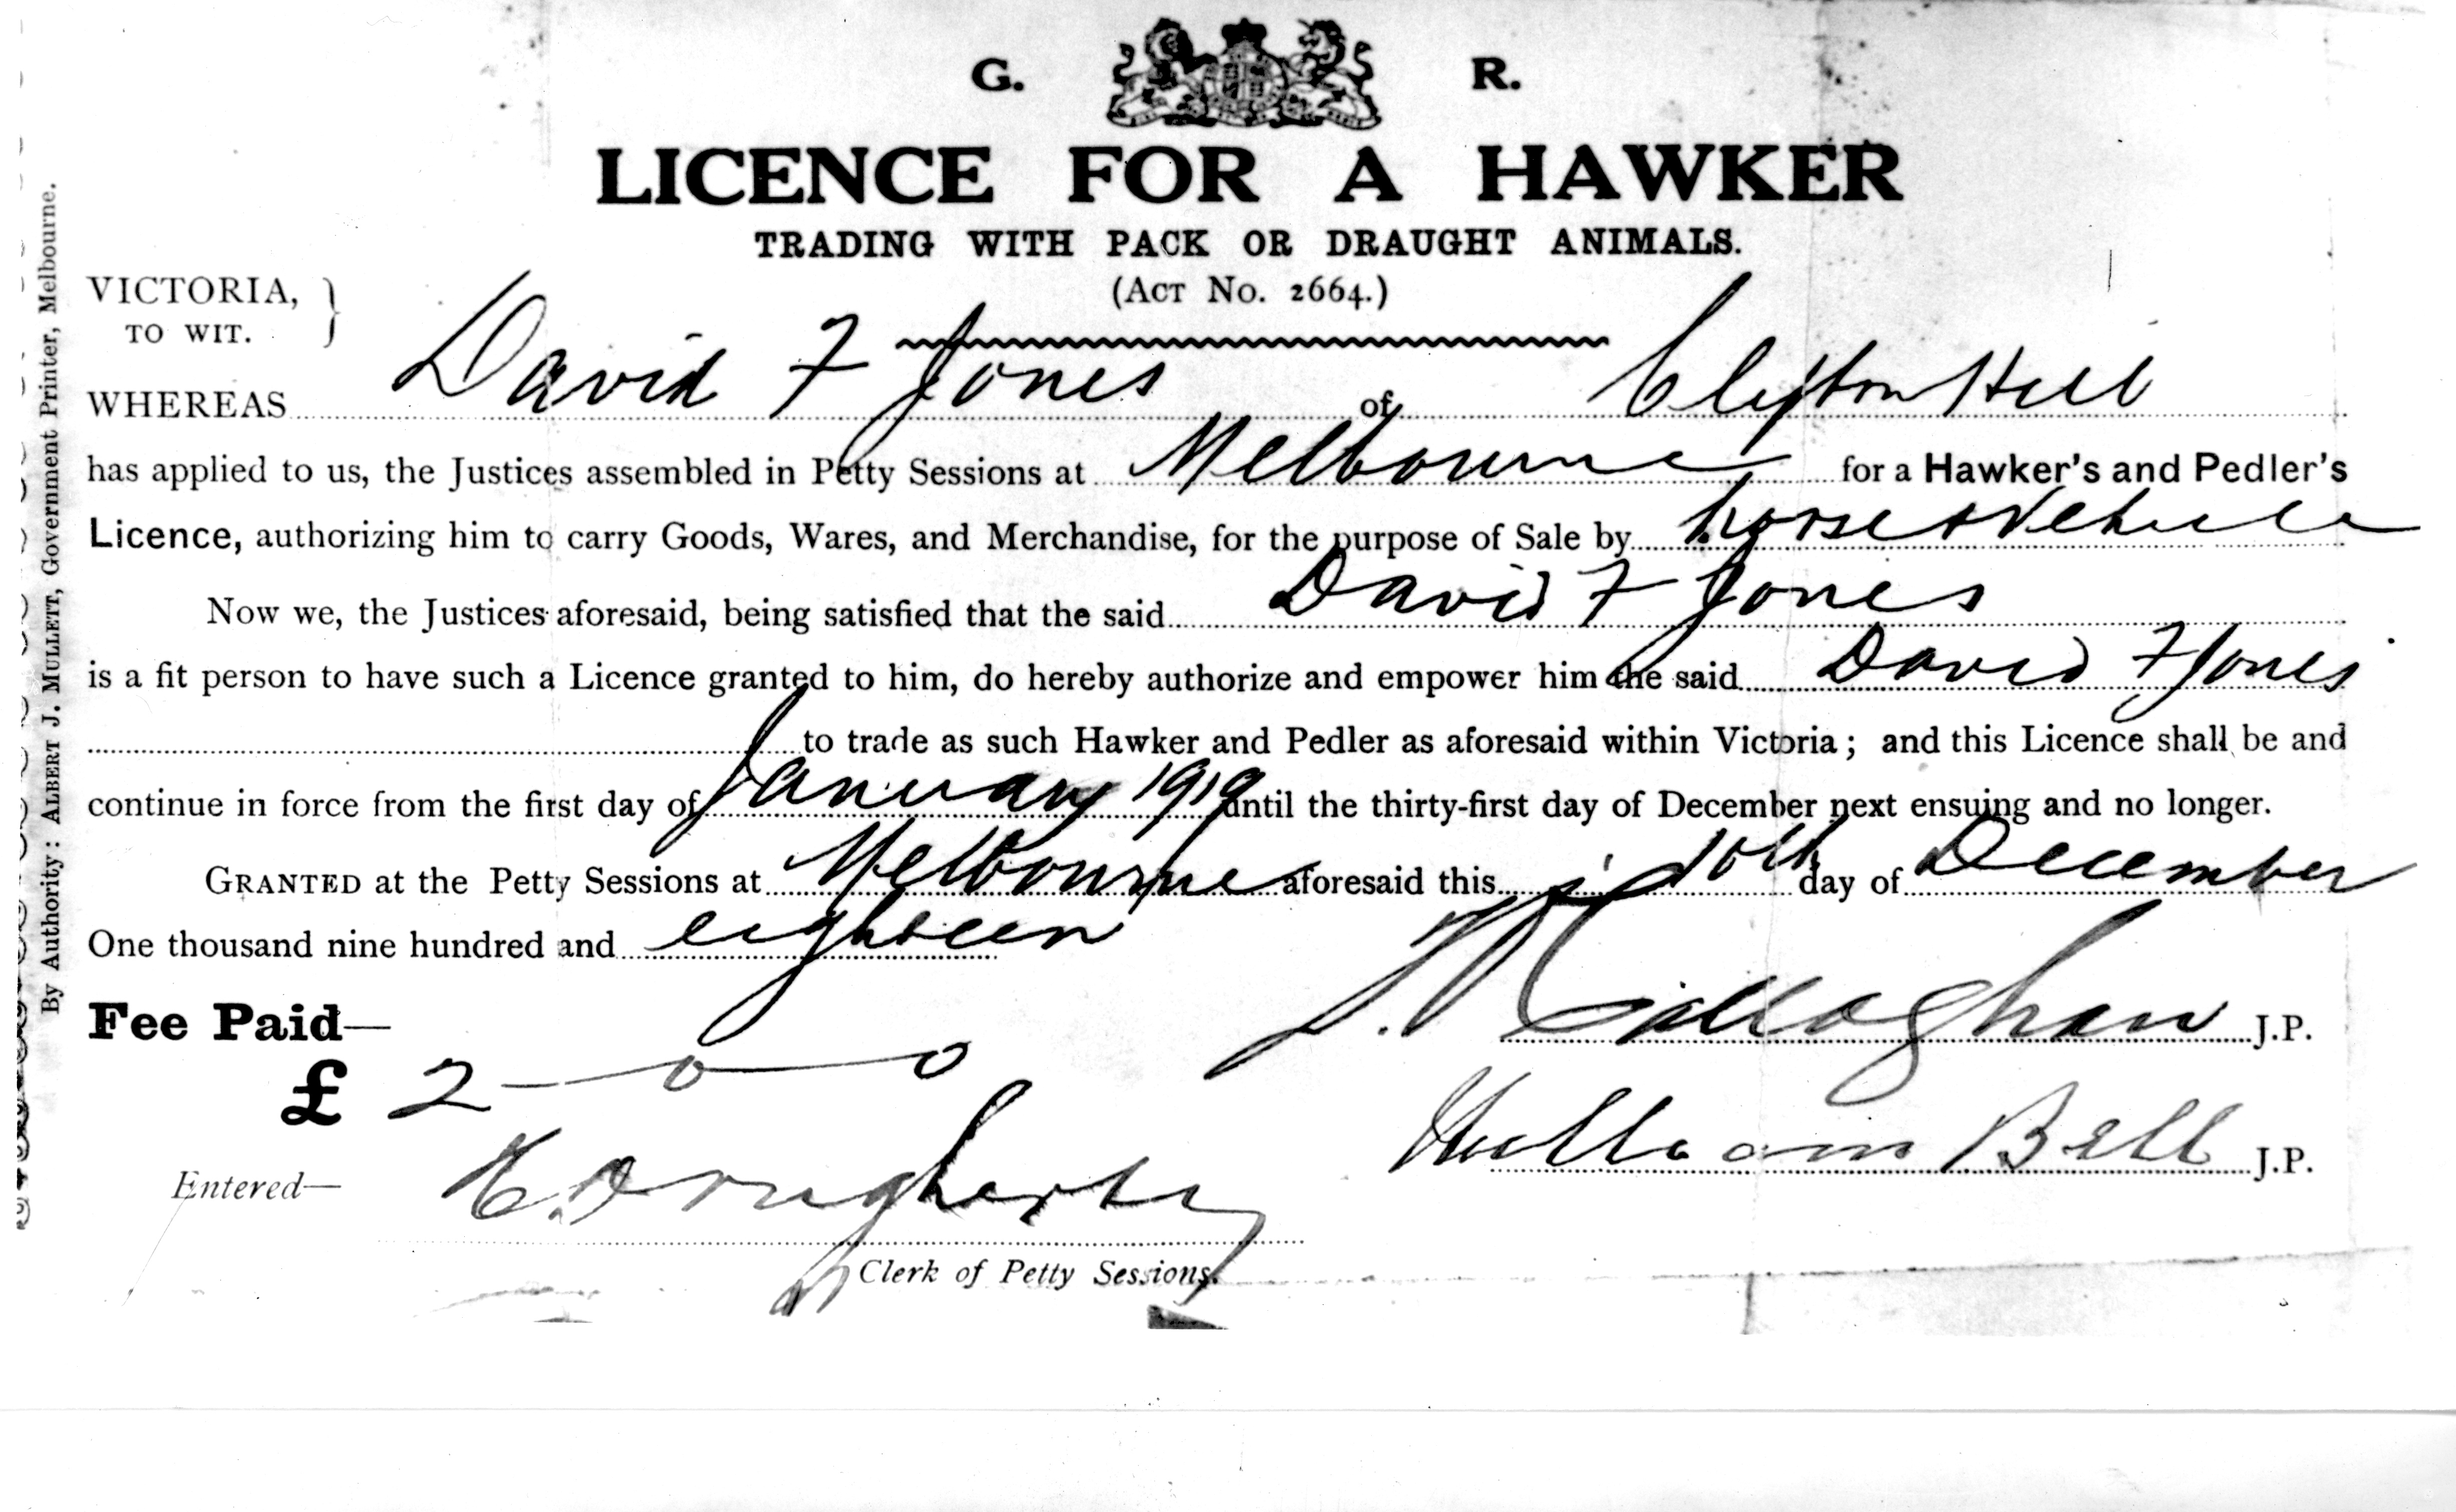 G. R.
LICENCE FOR A HAWKER
TRADING WITH PACK OR DRAUGHT ANIMALS.
(ACT No. 2664.)
VICTORIA, }
TO WIT.
WHEREAS David F Jones of Clifton Hill
has applied to us, the Justices assembled in Petty Sessions at Melbourne for a Hawker's and Pedler's
Licence, authorizing him to carry Goods, Wares, and Merchandise, for the purpose of Sale by horse & Vehicle
Now we, the Justices aforesaid, being satisfied that the said David F Jones
is a fit person to have such a Licence granted to him, do hereby authorize and empower him the said David F Jones
to trade as such Hawker and Pedler as aforesaid within Victoria; and this Licence shall be and
continue in force from the first day of January 1919 until the thirty-first day of December next ensuing and no longer.
GRANTED at the Petty Sessions at Melbourne aforesaid this 10th day of December
One thousand nine hundred and eighteen
Callaghan J.P.
Fee Paid—
£ 2-0-0
William Bell J.P.
Entered— Dougherty
Clerk of Petty Sessions.
By Authority: ALBERT J. MULLETT, Government Printer, Melbourne.